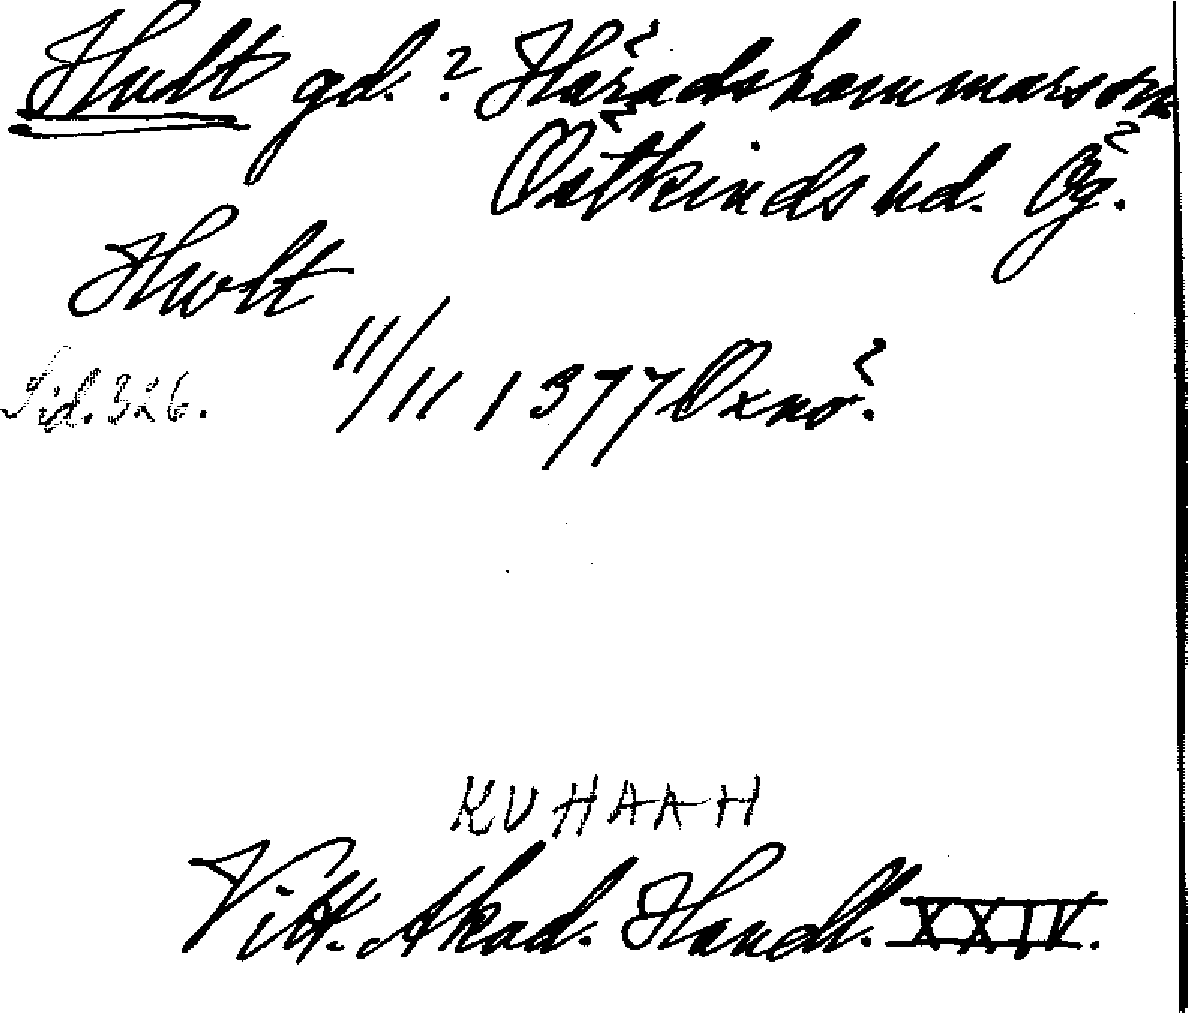 Hult gd.? Häradshammars sn
Östkinds hd. Ög.
Hwlt
Sid. 326. 11/11 1377 Oxnö.
KVHAAH
Vitt. Akad. Handl. XXIV.